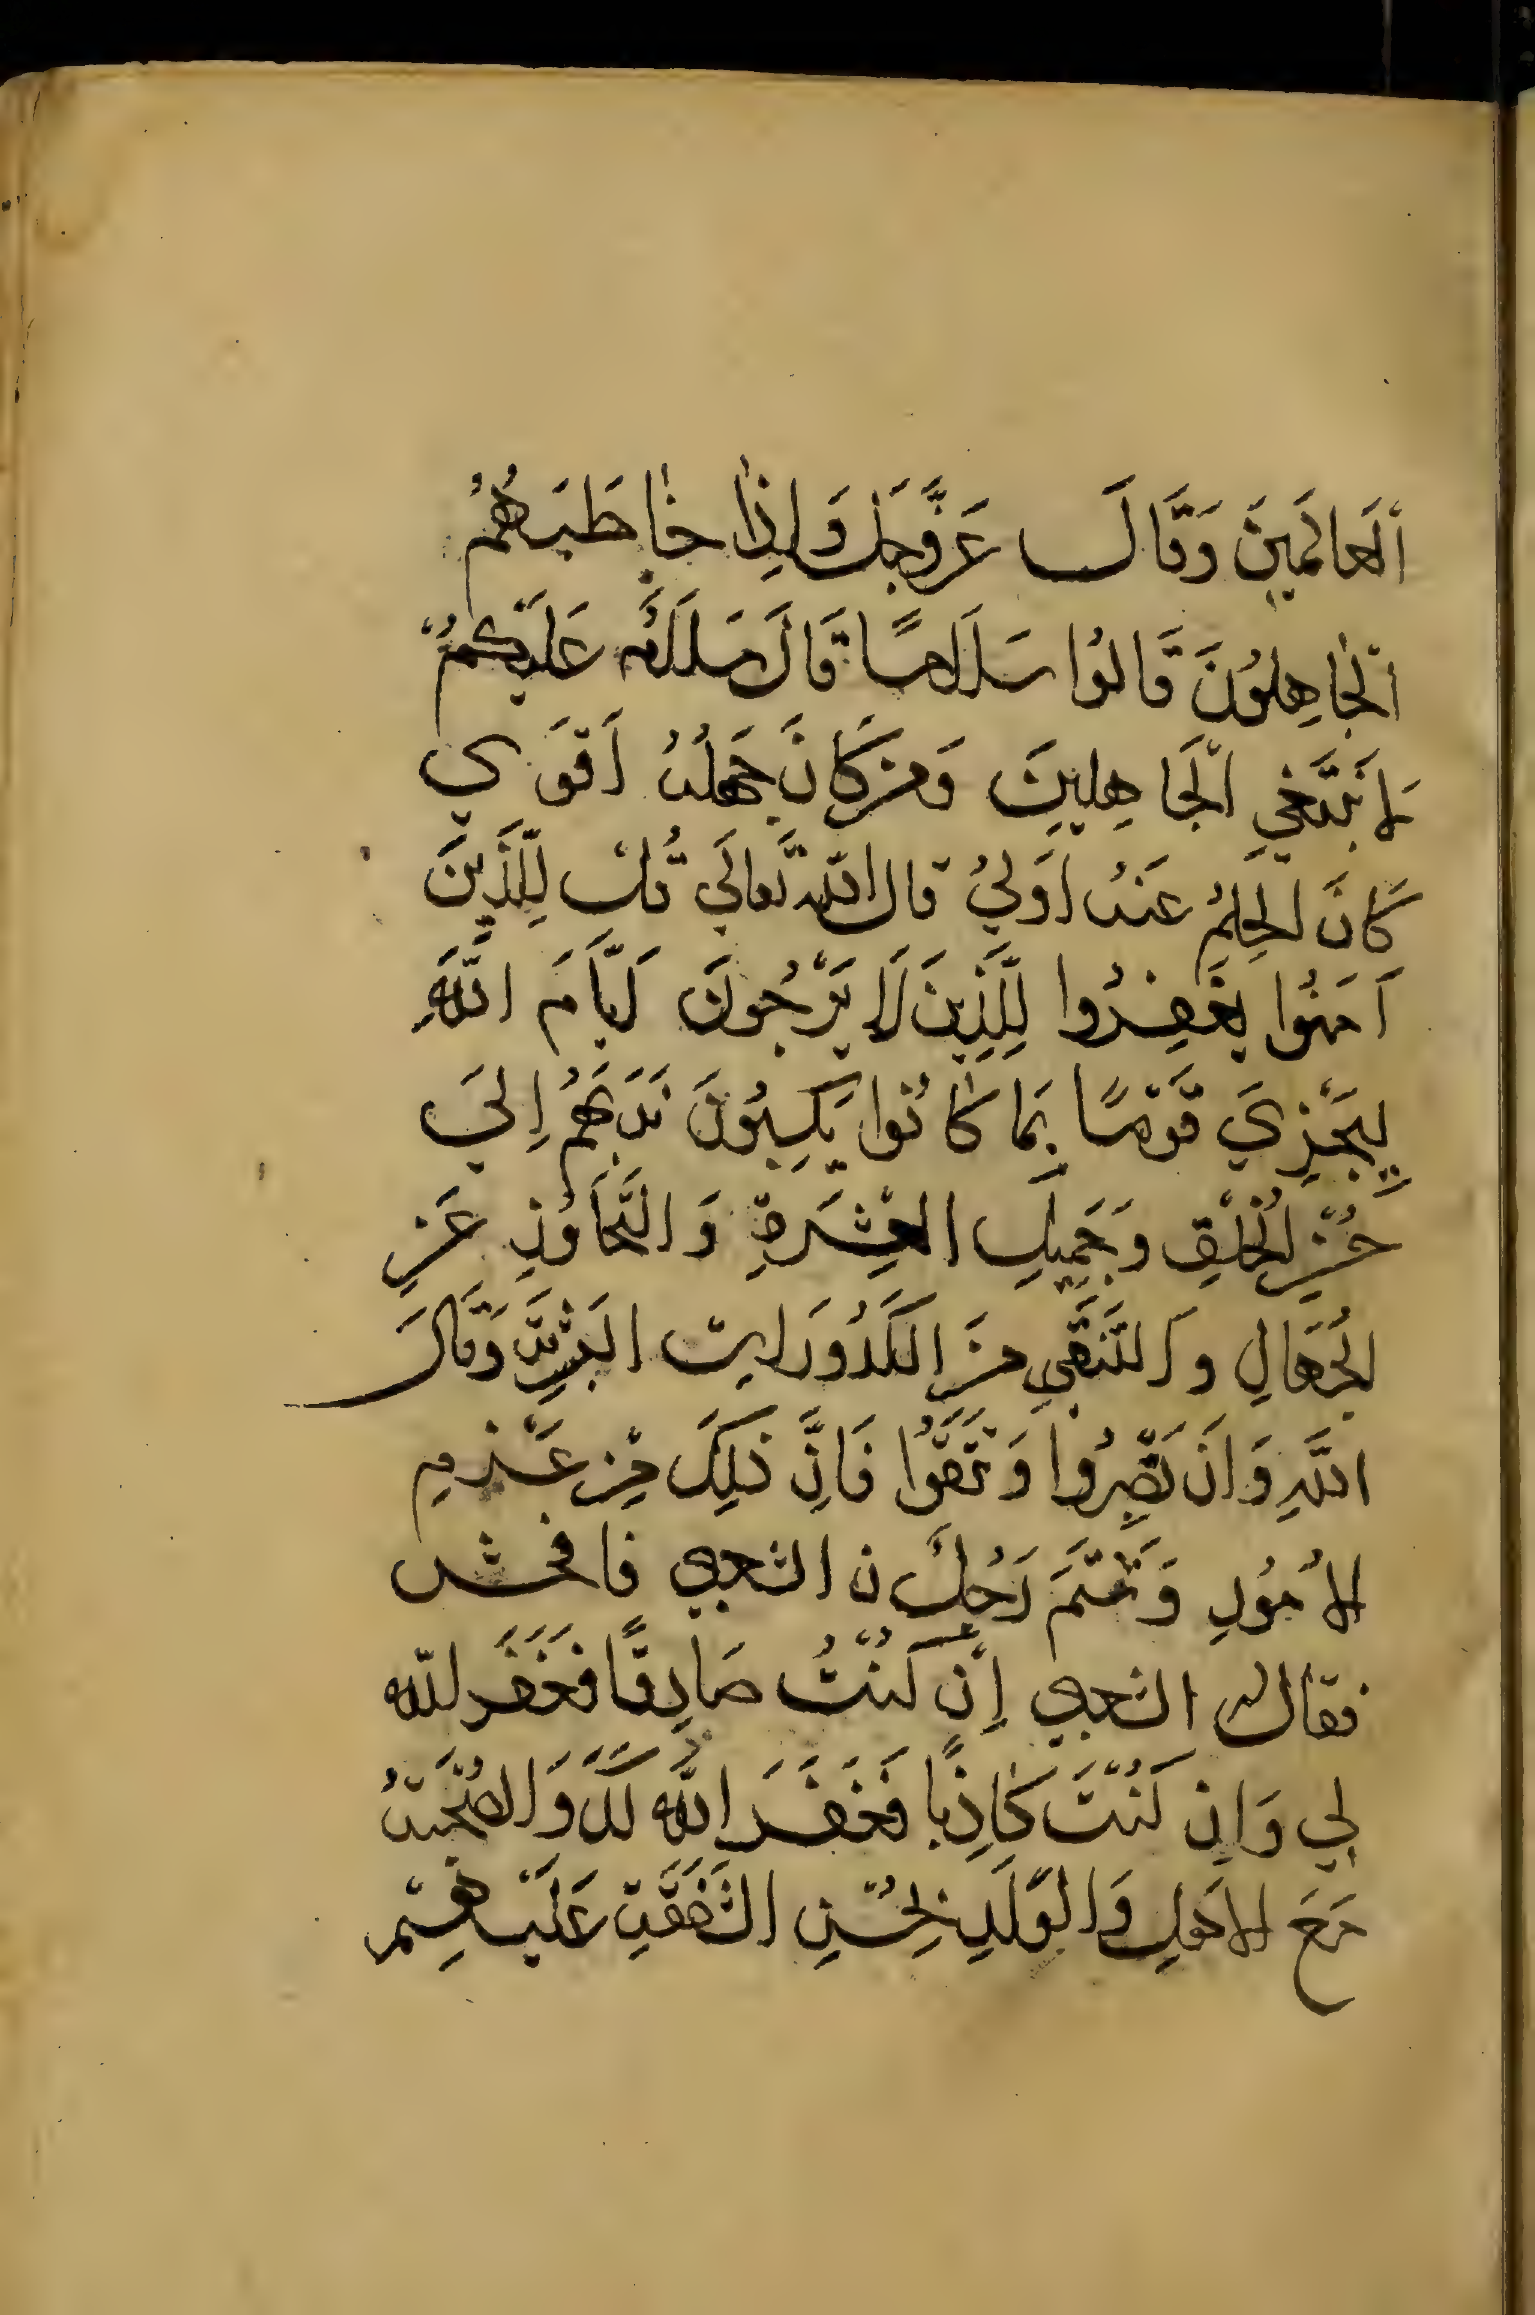 اَلعَالَمِينَ وَقَالَ عَزَّ وَجَلَّ وَاِذَا خَاطَبَهُمُ
اَلجَاهِلُونَ قَالُوا سَلَامًا قَالَ سَلَامٌ عَلَيْكُمْ
لَا نَبْتَغِي اَلجَاهِلِينَ وَمَن كَانَ جَهْلُهُ اَقْوَي
كَانَ الحِلْمُ عَنهُ اَوْلَيُ قال اللّه تَعالَي قُل لِلَّذِينَ
اَمَنُوا يَغْفِرُوا لِلَّذِينَ لَا يَرْجُونَ اَيَّامَ اللَّهِ
لِيَجْزِيَ قَوْمًا بِمَا كَانُوا يَكْسِبُونَ نَدَبَهُمْ اِلَيَ
حُسْنِ الخُلْقِ وَجَمِيلِ العِشْرَةِ وَالتَّجَاوُزِ عَنِ
الجُهَالِ وَالتَنَقِّي مِنَ الكَدُورَاتِ البَشَرِيَّةِ وَقَالَ
اللَّهِ وَاَن تَصْبِرُوا وَتَتَّقُوا فَاِنَّ ذَلِكَ مِن عَزْمِ
الاُمُورِ وَشَتَمَ رَجُلٌ ن الشعبي فافحش
فقال الشعبي إِن كُنْتُ صَادِقًا فَغَفَرَ اللّه
لِي وَاِن كُنْتَ كَاذِبًا فَغَفَرَ اللَّه لَكَ وَالصُّحْبَةُ
مَعَ الاَهْلِ وَالوَلَدِ بِحُسْنِ الشَفَقَةِ عَلَيْهِمْ